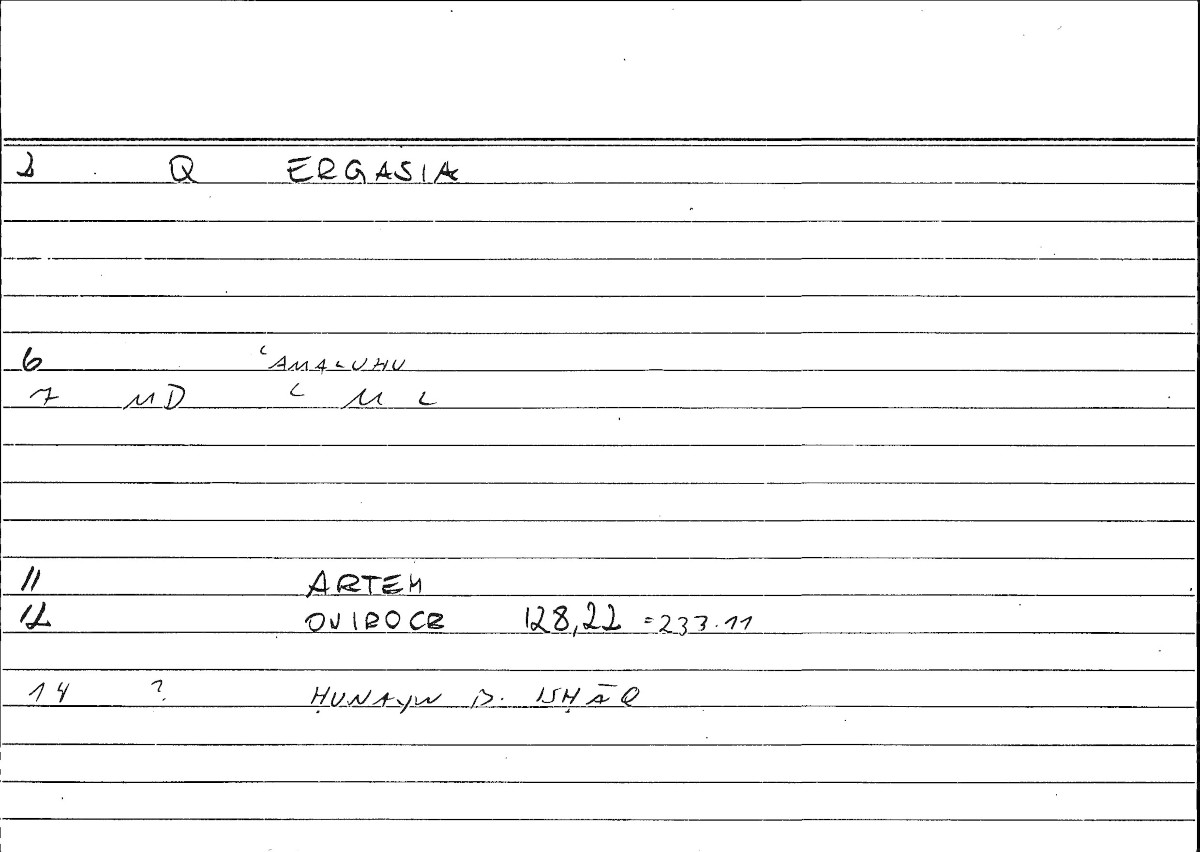 2 Q ERGASIA
6 ʿAMALUHU
7 MD ʿ M L
11 ARTEM
12 OVIROCR 128,22 =233.11
14 ? ḤUNAYN B. ISḤĀQ